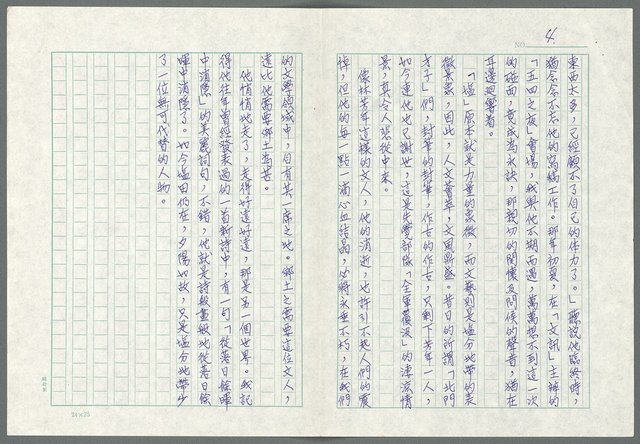 NO. 4.
東西太多，已經顧不了自己的体力了。」聽說他臨終時，
猶念念不忘他的寫稿工作。那年初夏，在「文訊」主辦的
「五四之夜」會場，我與他不期而遇，萬萬想不到這一次
的碰面，竟成為永訣，那親切的關懷及問候的聲音，猶在
耳邊迴響着。
「塩」原本就是力量的象徵，而文藝則是塩分地帶的表
徵景象，因此，人文薈萃，文風鼎盛。昔日的所謂「北門
才子」們，封筆的封筆，作古的作古，只剩下芳年一人，
如今連他也已謝世，這是失鹽部隊「全軍覆沒」的淒涼情
景，真令人悲從中來。
像林芳年這樣的文人，他的消逝，也許引不起人們的震
悼，但他的每一點一滴心血結晶，必將永垂不朽，在我們
的文學領域中，自有其一席之地。鄉土之需要這位文人，
遠比他需要鄉土為甚。
他悄悄地走了，走得好遠好遠，那是另一個世界。我記
得他往年曾經發表過的一首新詩中，有一句「從落日餘暉
中消隱」的美麗詞句，不錯，他就是詩般畫般地從落日餘
暉中消隱了。如今塩田仍在，夕陽如故，只是塩分地帶少
了一位無可代替的人物。
24×25